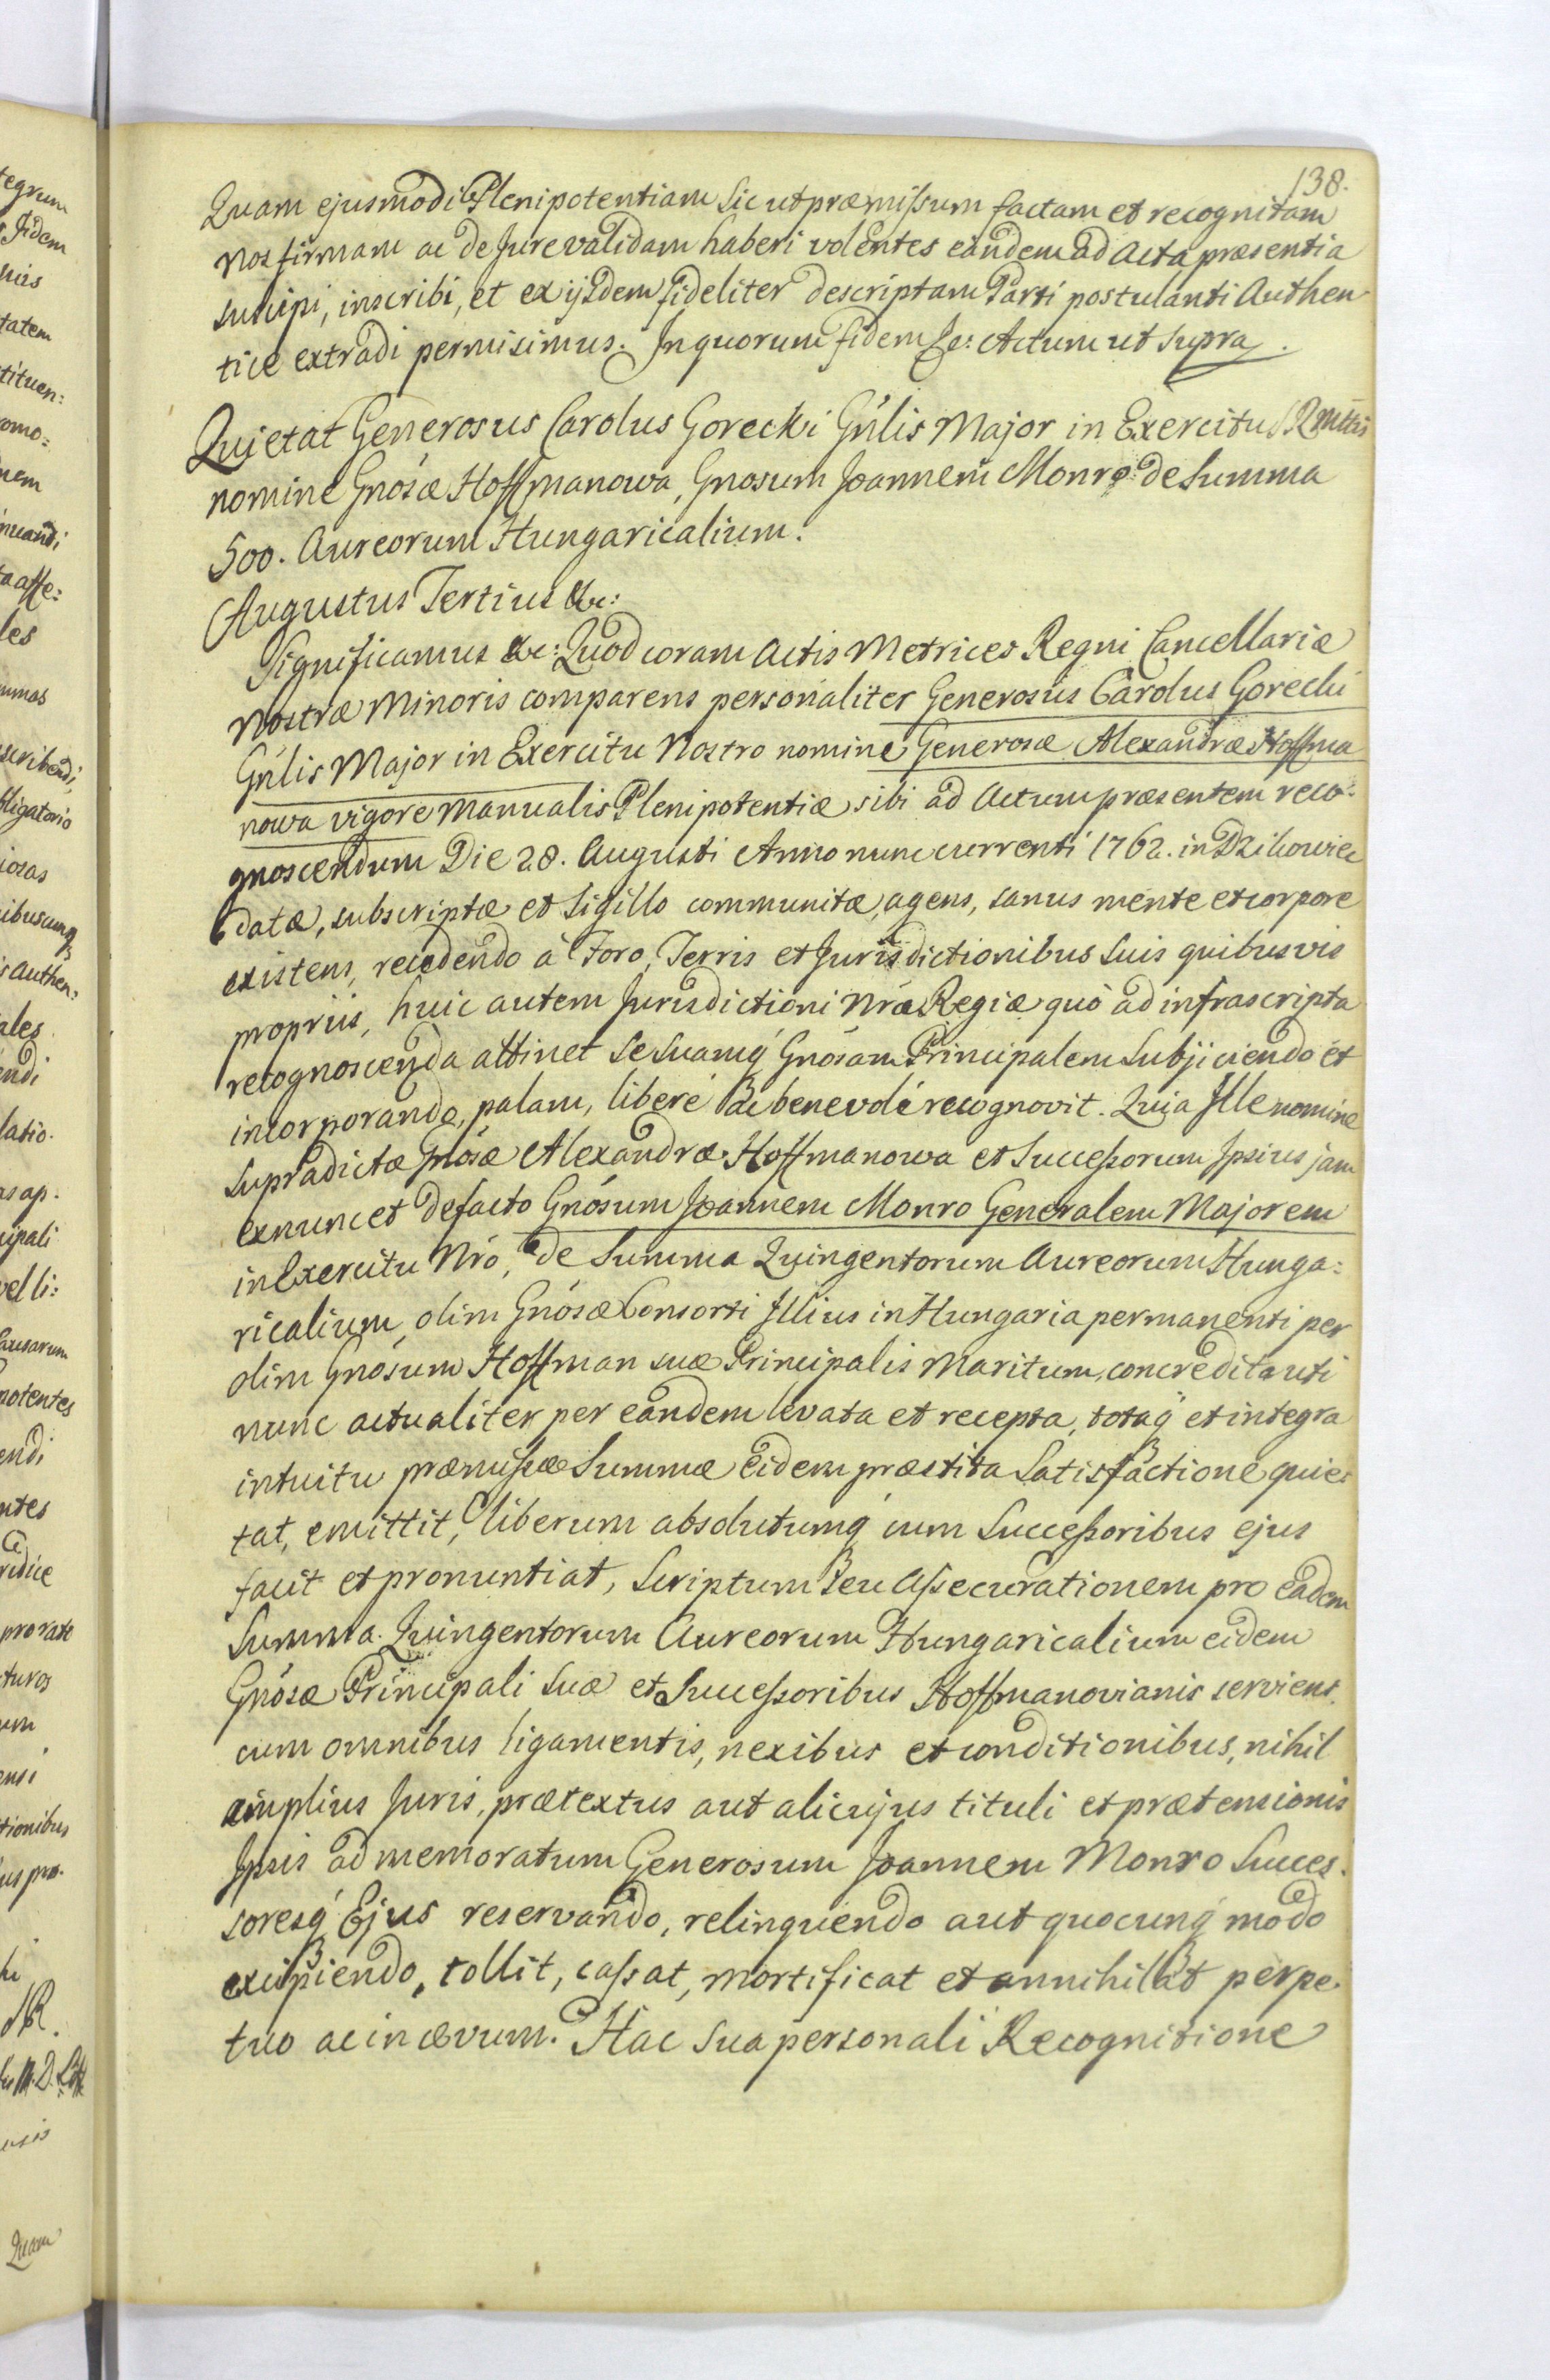 138.
Quam ejusmodi Plenipotentiam sic ut præmissum factam et recognitam
nos firmam ac de Jure validam haberi volentes eandem ad Acta præsentia
suscipi, inscribi, et ex ijsdem fideliter descriptam Parti postulanti Authen
tice extradi permisimus. In quorum fidem &c: Actum ut supra.
Quietat Generosus Carolus Gorecki Gñlis Major in Exercitu
nomine Gnósæ Hoffmanowa, Gnosum Joannem Monro de Summa
500. Aureorum Hungaricalium.
Augustus Tertius &c:
Significamus &c: Quod coram Actis Metrices Regni Cancellariæ
Nostræ Minoris comparens personaliter Generosus Carolus Gorecki
Gñlis Major in Exercitu Nostro nomine Generosæ Alexandræ Hoffma
nowa vigore Manualis Plenipotentiæ sibi ad Actum præsentem reco:
gnoscendum Die 28. Augusti Anno nunc currenti 1762. in Dzikowiec
datæ, subscriptæ et Sigillo communitæ, agens, sanus mente et corpore
existens, recedendo à Foro, Terris et Jurisdictionibus Suis quibusvis
propriis, huic autem Jurisdictioni Nræ Regiæ quò ad infrascripta
recognoscenda attinet se suamq́ Gnósam Principalem Subjiciendo et
incorporando, palam, liberé ac benevolé recognovit. Quia Ille nomine
supradictæ Gnósæ Alexandræ Hoffmanowa et Successorum Ipsius jam
ex nunc et defacto Gnósum Joannem Monro Generalem Majorem
in Exercitu Nró, de Summa Quingentorum Aureorum Hunga:
ricalium, olim Gnósæ Consorti Illius in Hungaria permanenti per
olim Gnósum Hoffman suæ Principalis Maritum, concredita uti
nunc actualiter per eandem levata et recepta, totaq́ et integra
intuitu præmissæ Summæ eidem præstita Satisfactione quie:
tat, emittit, liberum absolutumq́ cum Successoribus ejus
facit et pronuntiat, Scriptum seu Assecurationem pro eadem
Summa Quingentorum Aureorum Hungaricalium eidem
Gnósæ Principali suæ et Successoribus Hoffmanovianis serviens.
cum omnibus ligamentis, nexibus et conditionibus, nihil
amplius Juris, prætextus aut alicujus tituli et prætensionis
Ipsis ad memoratum Generosum Joannem Monro Succes.
soresq́ Ejus reservando, relinquendo aut quocunq́ modo
excipiendo, tollit, cassat, mortificat et annihilat perpe
tuo ac in ævum. Hac sua personali Recognitione